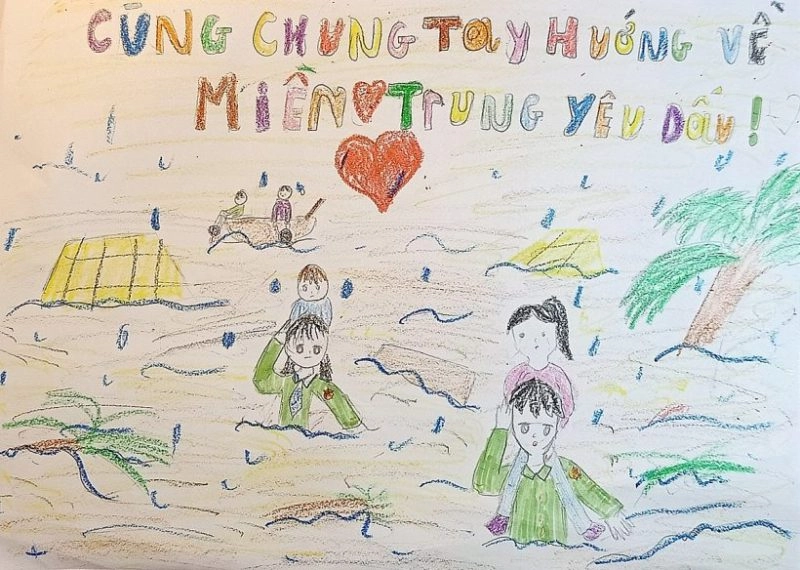 CÙNG CHUNG TAY HƯỚNG VỀ
MIỀN TRUNG YÊU DẤU!